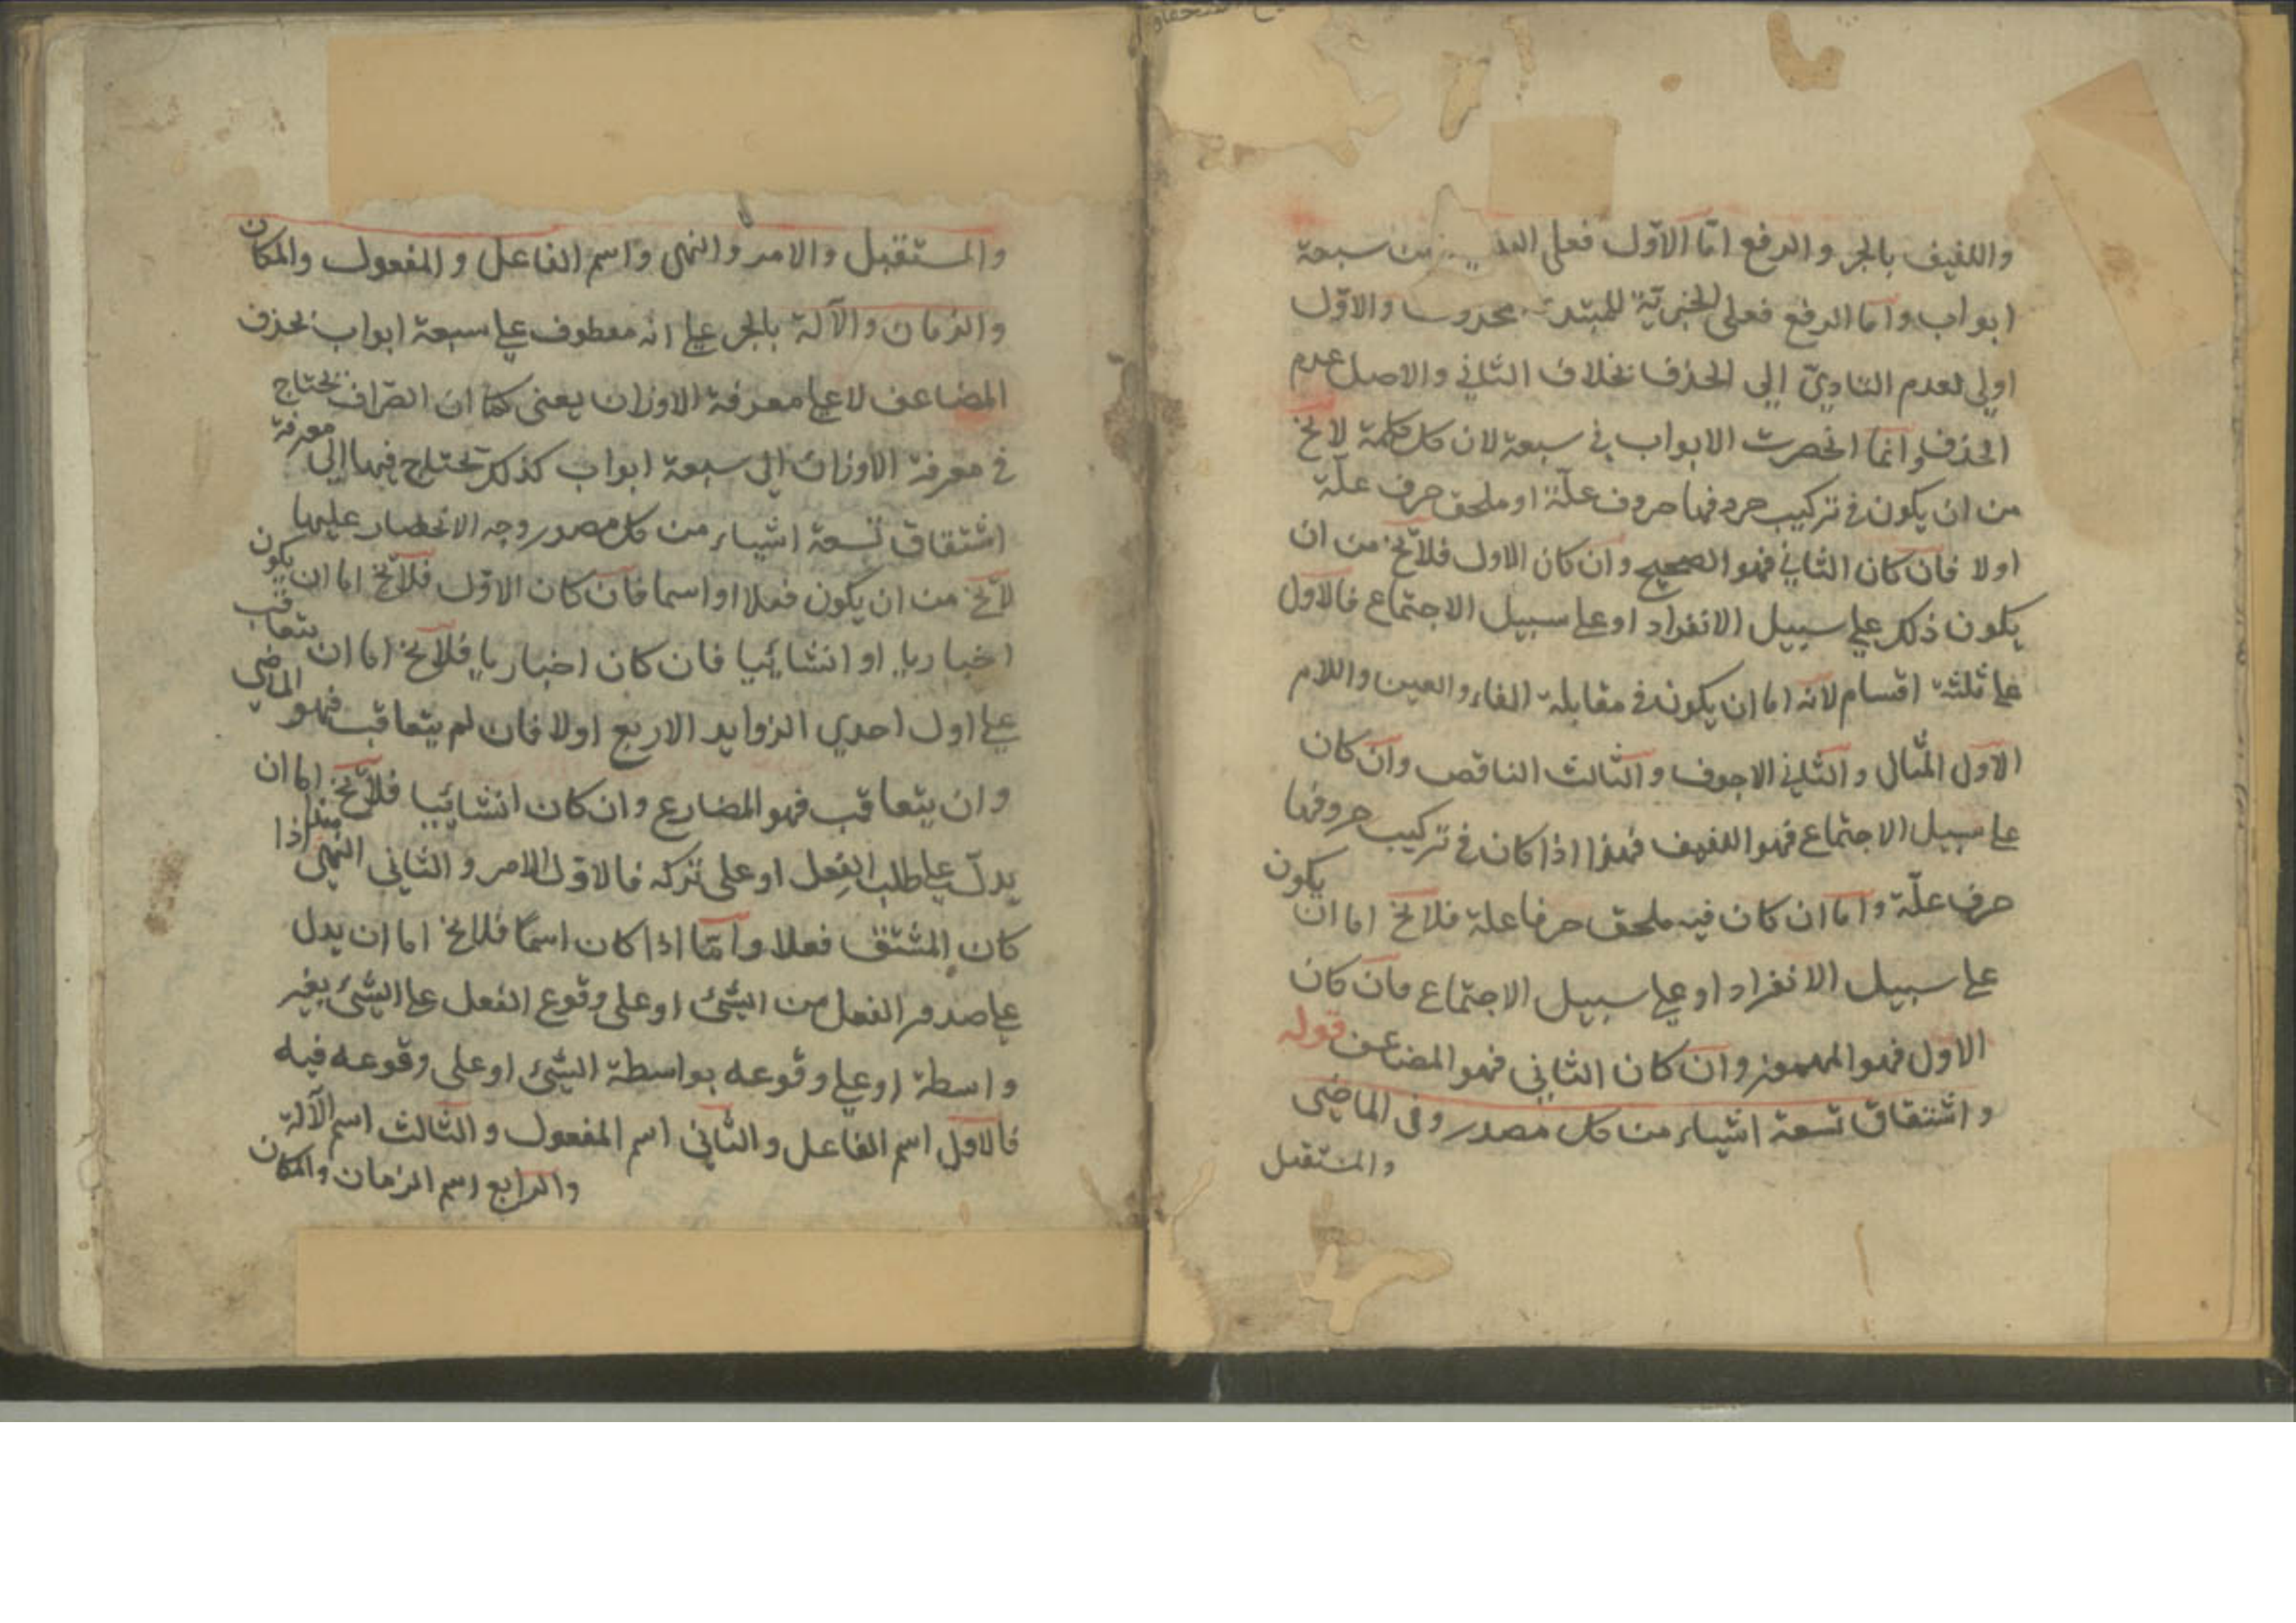 واللفيف بالجر والرفع امّا الاوّل فعلى من سبعة
ابواب واما الرفع فعلى الخبريّة للمبتدا والاوّل
اولى لعدم التاديّ الى الحذف بخلاف الثاني والاصل عدم
الحذف وانما انحصرت الابواب في سبعة لان كل كلمة لا يخ
من ان يكون في تركيب حروفها حروف علّة او ملحق حرف علّة
او لا فان كان الثاني فهو الصحيح وان كان الاول فلا يخ من ان
يكون ذلك على سبيل الانفراد او على سبيل الاجتماع فالاول
على ثلثة اقسام لانه اما ان يكون في مقابلة الفاء والعين واللام
الاول المثال والثاني الاجوف والثالث الناقص وان كان
على سبيل الاجتماع فهو اللفيف فهذا اذا كان في تركيب حروفها
حرف علّة واما ان كان فيه ملحق حرفا علة فلا يخ اما ان يكون
على سبيل الانفراد او على سبيل الاجتماع فان كان
الاول فهو المهموز وان كان الثاني فهو المضاعف قوله
واشتقاق تسعة اشياء من كل مصدر وفى الماضي
والمستقبل
والمستقبل والامر والنهى واسم الفاعل والمفعول والمكان
والزمان والآلة بالجر على انه معطوف على سبعة ابواب بحذف
المضاعف لا على معرفة الاوزان يعنى كما ان الصّراف يحتاج
في معرفة الاوزان الى سبعة ابواب كذلك يحتاج فيها الى معرفة
اشتقاق تسعة اشياء من كل مصدر وجه الانحصار عليها
لا يخ من ان يكون فعلا او اسما فان كان الاوّل فلا يخ اما ان يكون
اخباريا او انشائيا فان كان اخباريا فلا يخ اما ان يتعاقب
على اول احدي الزوايد الاربع اولا فان لم يتعاقب فهو الماضي
وان يتعاقب فهو المضارع وان كان انشائيا فلا يخ اما ان
يدلّ على طلب الفعل او على تركه فالاول الامر والثاني النهى هذا اذا
كان المشتق فعلا وامّا اذا كان اسمًا فلا يخ اما ان يدل
على صدور الفعل من الشئ او على وقوع الفعل على الشئ بغير
واسطة او على وقوعه بواسطة الشئ او على وقوعه فيه
فالاول اسم الفاعل والثاني اسم المفعول والثالث اسم الآلة
والرابع اسم الزمان والمكان